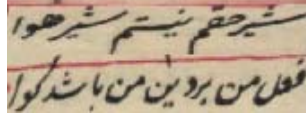 شیر حقم نیستم شیر هوا
فعل من بر دین من باشد گوا